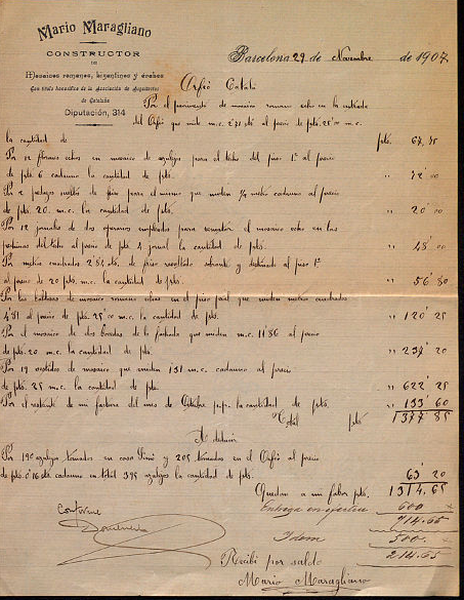 Mario Maragliano
CONSTRUCTOR
DE
Mosaicos romanos, bizantinos y árabes
Con título honorífico de la Asociación de Arquitectos
de Cataluña
Diputación, 314
Barcelona 29 de Novembre de 1907
Orfeó Català
Por el pavimento de mosaico romano en la entrada
del Orfeó que mide m.c. 2'71 al precio de pts. 25'00 m.c.
la cantidad de pts. 67,75
Por 12 en mosaico de azulejos para el techo del piso 1º al precio
de pts 6 cadauno la cantidad de pts. " 72'00
Por 2 de friso para el mismo que miden ½ metro cadauno al precio
de pts. 20. m.c. la cantidad de pts. " 20'00
Por 12 jornales de dos operarios empleados para el mosaico en las
del techo al precio de pts 4 jornal la cantidad de pts. " 48'00
Por metros cuadrados 2'84 de friso y destinado al piso 1º
al precio de 20 pts. m.c. la cantidad de pts. " 56'80
Por mosaico romano en el piso que miden metros cuadrados
4'81 al precio de pts. 25'00 m.c. la cantidad de pts. " 120'25
Por el mosaico de dos de la fachada que miden m.c. 11'86 al precio
de pts. 20 m.c. la cantidad de pts. " 237'20
Por 19 de mosaico que miden 1'31 m.c. cadauno al precio
de pts. 25 m.c. la cantidad de pts. " 622'25
Por el restante de mi factura del mes de Octubre p.p. la cantidad de pts. " 133'60
Total pts 1377'85
A deducir
Por 190 azulejos tomados en casa y 205 tomados en el Orfeó al precio
de pts. 0'16 cadauno en total 395 azulejos la cantidad de pts. 63'20
Quedan a mi favor pts. 1314.65
Entrega en efectivo 600
714.65
Idem 500
214.65
Conforme
Recibí por saldo
Mario Maragliano